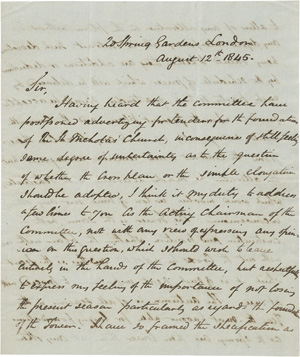 20 Spring Gardens London
August 12th 1845.
Sir,
Having heard that the committee have
postponed advertizing for tenders for the foundation
of the St. Nicholas' Church, in consequence of still feeling
some degree of uncertainty as to the question
of whether the cross plan or the simple elongation
should be adopted, I think it my duty to address
a few lines to you as the Acting Chairman of the
Committee, not with any view of expressing any opin-
ion on the question, which I should wish to leave
entirely in the hands of the Committee, but respectfully
to express my feeling of the importance of not losing
the present season particularly as regards the foundation
of the Tower. I have so framed the specification as